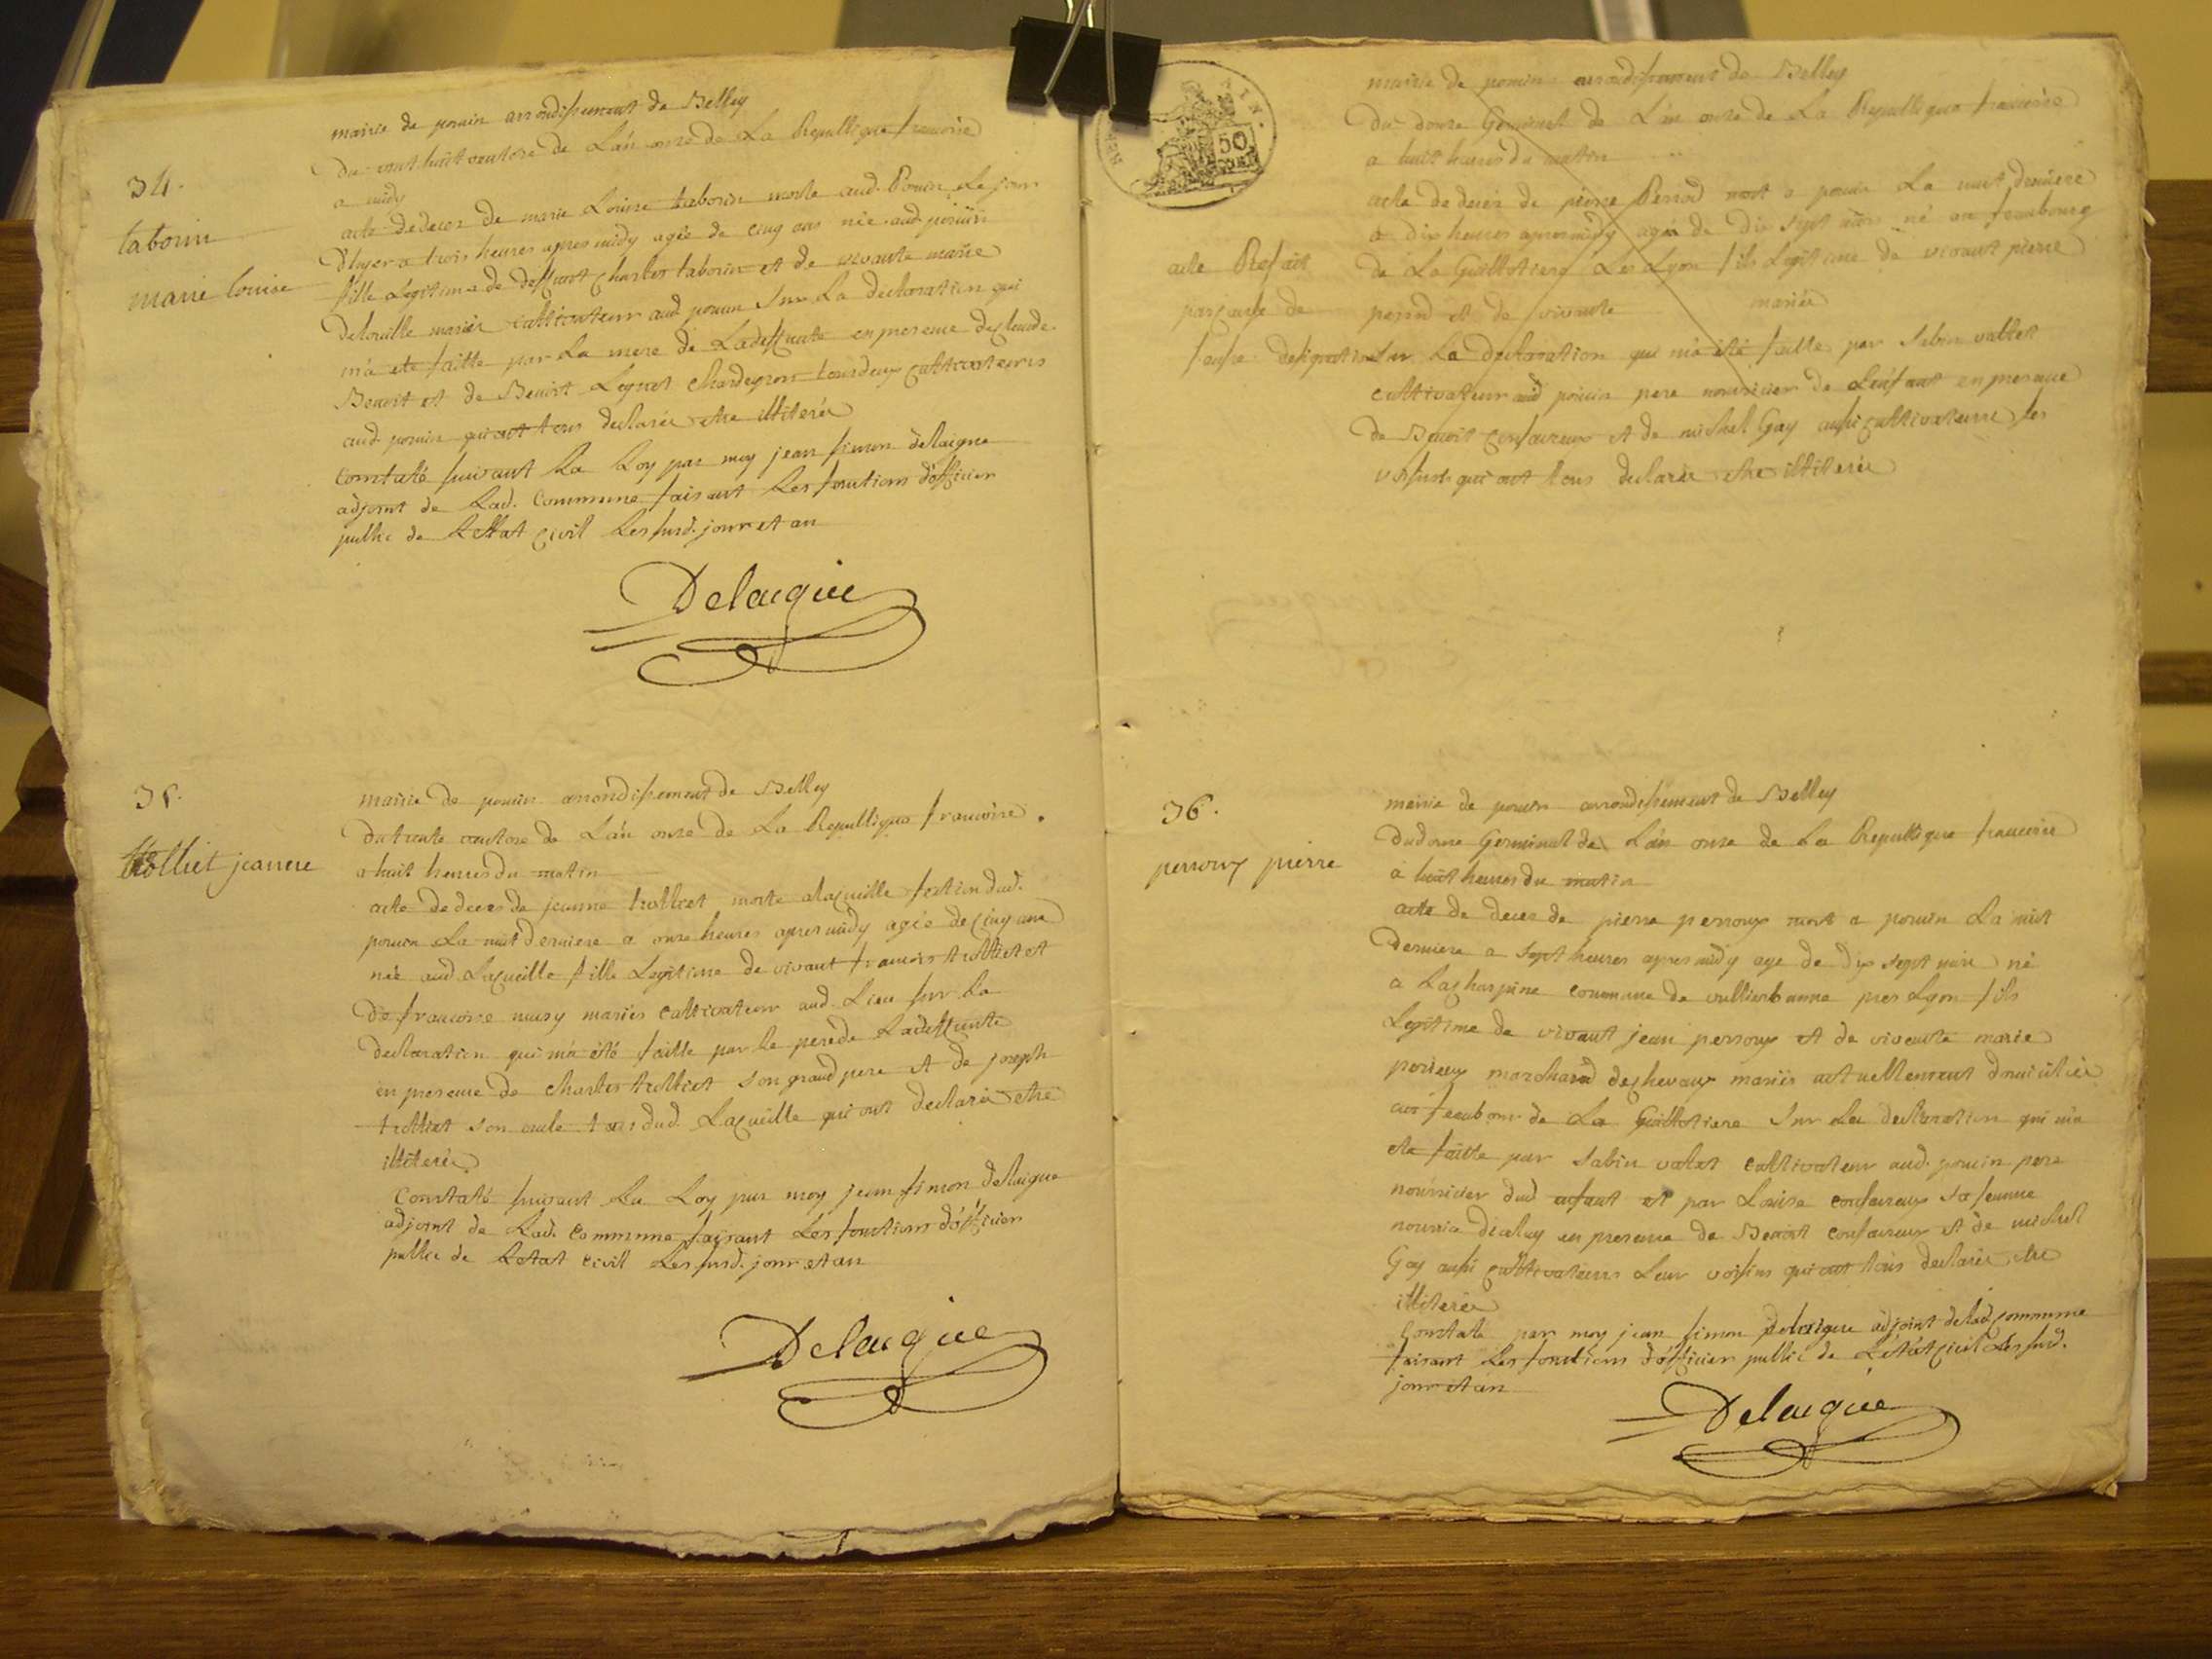 mairie de pouin arrondissement de Belley
du vent huit ventose de L'an onze de La Republique francoise
a midy
34.
tabouin
marie louise
acte de deces de marie Louise tabouin morte aud. Pouin Le jour
d'hyer a trois heures apres midy agée de cinq ans née aud pouin
fille Legitime de deffunt Charles tabouin et de vivante marie
mariés cultivateur aud pouin Sur La declaration qui
m'a été faitte par La mere de Ladeffunte en presence de
Benoit et de Benoit tous deux cultivateurs
aud. pouin qui ont tous declarés etre illiterés
Constaté suivant La Loy par moy jean simon delaigue
adjoint de Lad. Commune faisant Les fonctions d'officier
public de Lettat civil Les susd. jour et an
Delaigue
35.
trolliet jeanne
mairie de pouin arrondissement de Belley
du trente ventose de L'an onze de La Republique francoise.
a huit heures du matin
acte de deces de jeanne trolliet morte a Lacueille section dud.
pouin La nuit derniere a onze heures apres midy agée de cinq ans
née aud Lacueille fille Legitime de vivant francois trolliet et
de francoise musy mariés cultivateur aud. Lieu sur La
declaration qui m'a été faitte par Le pere de Ladeffunte
en presence de Charles trolliet son grand pere et de joseph
trolliet son oncle tous dud. Lacueille qui ont declarés etre
illiterés
Constaté suivant La Loy par moy jean simon delaigue
adjoint de Lad. Commune faisant Les fonctions d'officier
public de Letat civil Les susd. jour et an
Delaigue
AIN.
50
mairie de pouin arrondissement de Belley
du douze Germinal de L'an onze de La Republique francoise
a huit heures du matin
acte de deces de pierre Perrod mort a pouin La nuit derniere
a dix heures apres midy age de dix sept mois né au feaubourg
de La Guillotiere Les Lyon fils Legitime de vivant pierre
perrod et de vivante mariés
acte Refait
par cause de
fausse designation
Sur La declaration qui m'a été faitte par Sabin vallet
cultivateur aud pouin pere nourricier de L'enfant en presence
de Benoit confaireux et de michel Gay aussi cultivateurs ses
voisins qui ont tous declarés etre illiterés
36.
perroux pierre
mairie de pouin arrondissement de Belley
du douze Germinal de L'an onze de La Republique francoise
a huit heures du matin
acte de deces de pierre perroux mort a pouin La nuit
derniere a sept heures apres midy age de dix sept mois né
a Lacharpine commune de vullierbanne pres Lyon fils
Legitime de vivant jean perroux et de vivante marie
marchand de chevaux mariés actuellement domiciliés
au feaubour de La Guillotiere Sur La declaration qui m'a
ete faitte par Sabin valet cultivateur aud. pouin pere
nourricier dud enfant et par Louise confaireux sa femme
nourrice d'iceluy en presence de Benoit confaireux et de michel
Gay aussi cultivateurs Leur voisins qui ont tous declarés etre
illiterés
Constaté par moy jean simon delaigue adjoint de Lad commune
faisant Les fonctions d'officier public de L'état civil Les susd.
jour et an
Delaigue